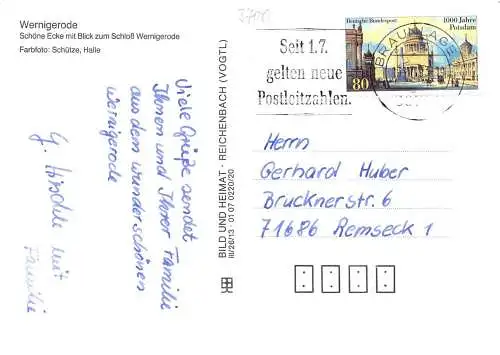 Wernigerode
Schöne Ecke mit Blick zum Schloß Wernigerode
Farbfoto: Schütze, Halle
Viele Grüße sendet
Ihnen und Ihrer Familie
aus dem wunderschönen
Wernigerode
G. Hirschle mit
Familie
BILD UND HEIMAT - REICHENBACH (VOGTL)
III/26/13 · 01 07 0220/20
Seit 1.7.
gelten neue
Postleitzahlen.
BRAUNLAGE
Deutsche Bundespost
1000 Jahre
Potsdam
80
Herrn
Gerhard Huber
Brucknerstr. 6
71686 Remseck 1